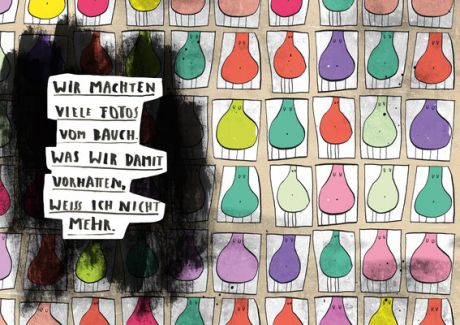 WIR MACHTEN
VIELE FOTOS
VOM BAUCH.
WAS WIR DAMIT
VORHATTEN,
WEISS ICH NICHT
MEHR.